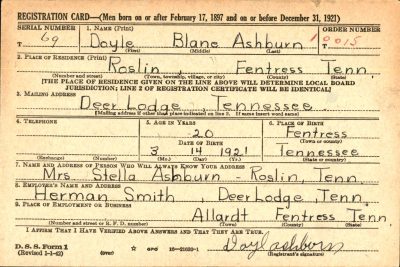 REGISTRATION CARD—(Men born on or after February 17, 1897 and on or before December 31, 1921)
SERIAL NUMBER 1. NAME (Print) ORDER NUMBER
T 69 Doyle Blane Ashburn 10015
(First) (Middle) (Last)
2. PLACE OF RESIDENCE (Print)
Roslin Fentress Tenn.
(Number and street) (Town, township, village, or city) (County) (State)
[THE PLACE OF RESIDENCE GIVEN ON THE LINE ABOVE WILL DETERMINE LOCAL BOARD
JURISDICTION; LINE 2 OF REGISTRATION CERTIFICATE WILL BE IDENTICAL]
3. MAILING ADDRESS
Deer Lodge, Tennessee
[Mailing address if other than place indicated on line 2. If same insert word same]
4. TELEPHONE 5. AGE IN YEARS 6. PLACE OF BIRTH
20 Fentress
DATE OF BIRTH (Town or county)
3 14 1921 Tennessee
(Exchange) (Number) (Mo.) (Day) (Yr.) (State or country)
7. NAME AND ADDRESS OF PERSON WHO WILL ALWAYS KNOW YOUR ADDRESS
Mrs. Stella Ashburn - Roslin, Tenn.
8. EMPLOYER'S NAME AND ADDRESS
Herman Smith, Deer Lodge, Tenn.
9. PLACE OF EMPLOYMENT OR BUSINESS
Allardt Fentress Tenn
(Number and street or R. F. D. number) (Town) (County) (State)
I AFFIRM THAT I HAVE VERIFIED ABOVE ANSWERS AND THAT THEY ARE TRUE.
D. S. S. Form 1 GPO 16—21630-1 Doyl ashborn
(Revised 1-1-42) (over) (Registrant's signature)